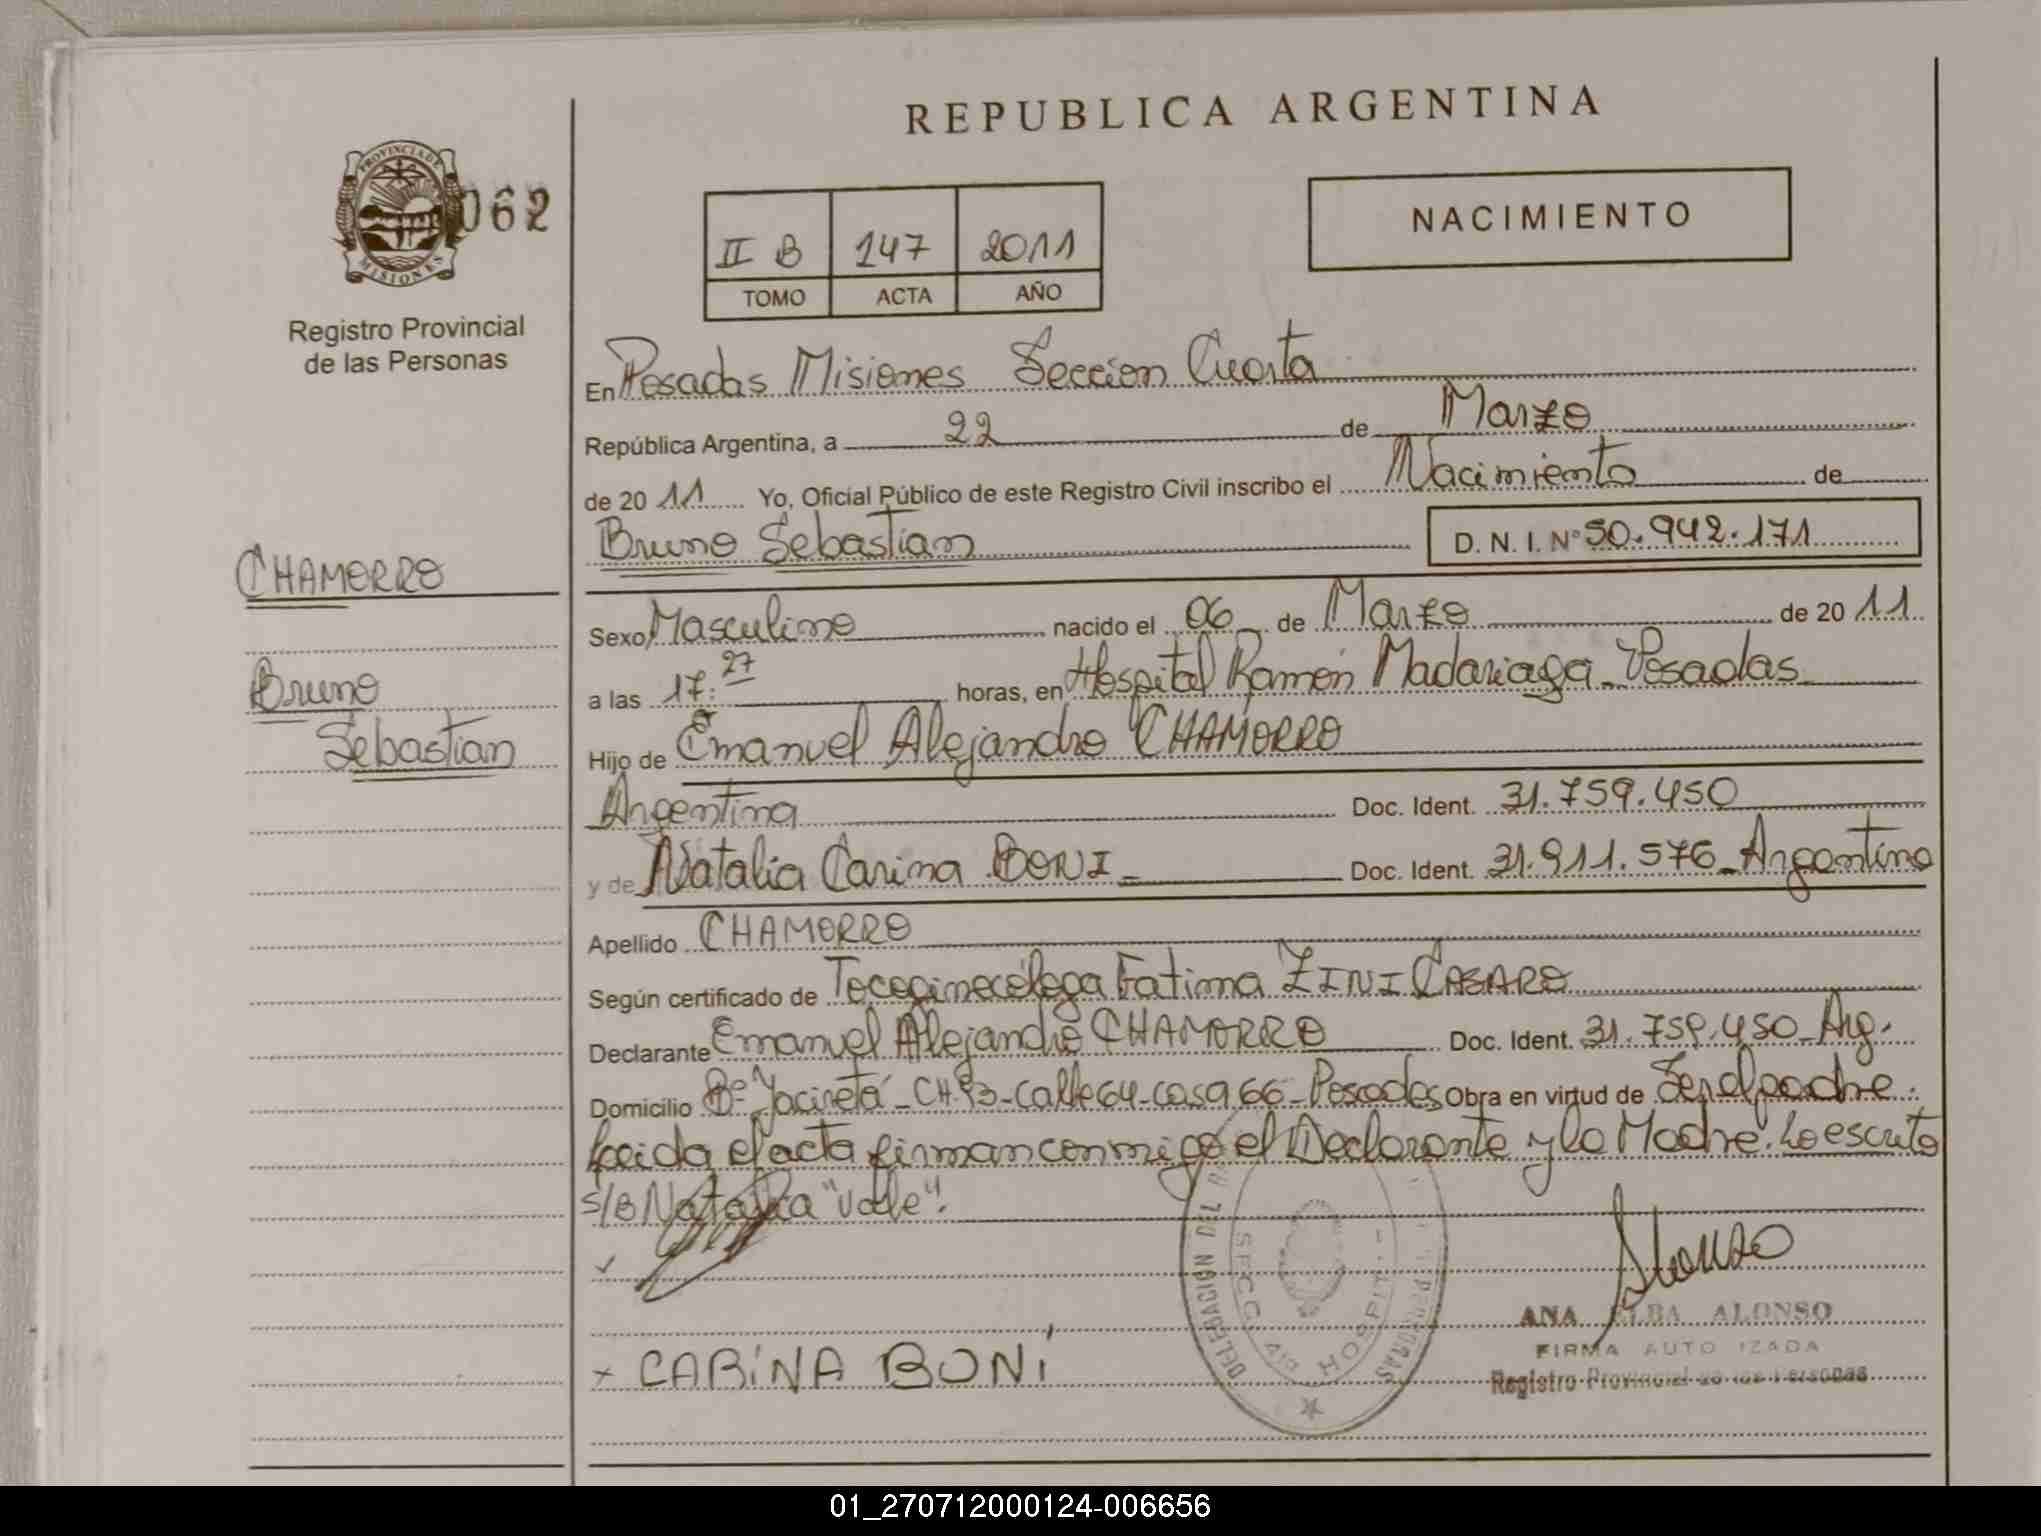 REPUBLICA ARGENTINA
PROVINCIA DE
MISIONES
062
Registro Provincial
de las Personas
II B 147 2011
TOMO ACTA AÑO
NACIMIENTO
En Posadas Misiones Seccion Cuarta
República Argentina, a 22 de Marzo
de 2011 Yo, Oficial Público de este Registro Civil inscribo el Nacimiento de
Bruno Sebastian D. N. I. Nº 50.942.171
CHAMORRO
Bruno
Sebastian
Sexo Masculino nacido el 06 de Marzo de 2011
a las 17:27 horas, en Hospital Ramón Madariaga - Posadas
Hijo de Emanuel Alejandro CHAMORRO
Argentina Doc. Ident. 31.759.450
y de Natalia Carina BONI - Doc. Ident. 31.911.576 - Argentina
Apellido CHAMORRO
Según certificado de Tocoginecóloga Fatima ZINI
Declarante Emanuel Alejandro CHAMORRO Doc. Ident. 31.759.450 - Arg.
Domicilio Bº Yacireta - CH. - Calle 64 - casa 66 - Posadas Obra en virtud de Ser el padre.
Leida el acta firman conmigo el Declarante y la Madre. Lo escrito
s/B Natalia "Vale".
Alonso
ANA ELBA ALONSO
FIRMA AUTO IZADA
Registro Provincial de las Personas
x CARINA BONI
DELEGACION
SECC. HOSPIT.
PERSONAS
01_270712000124-006656